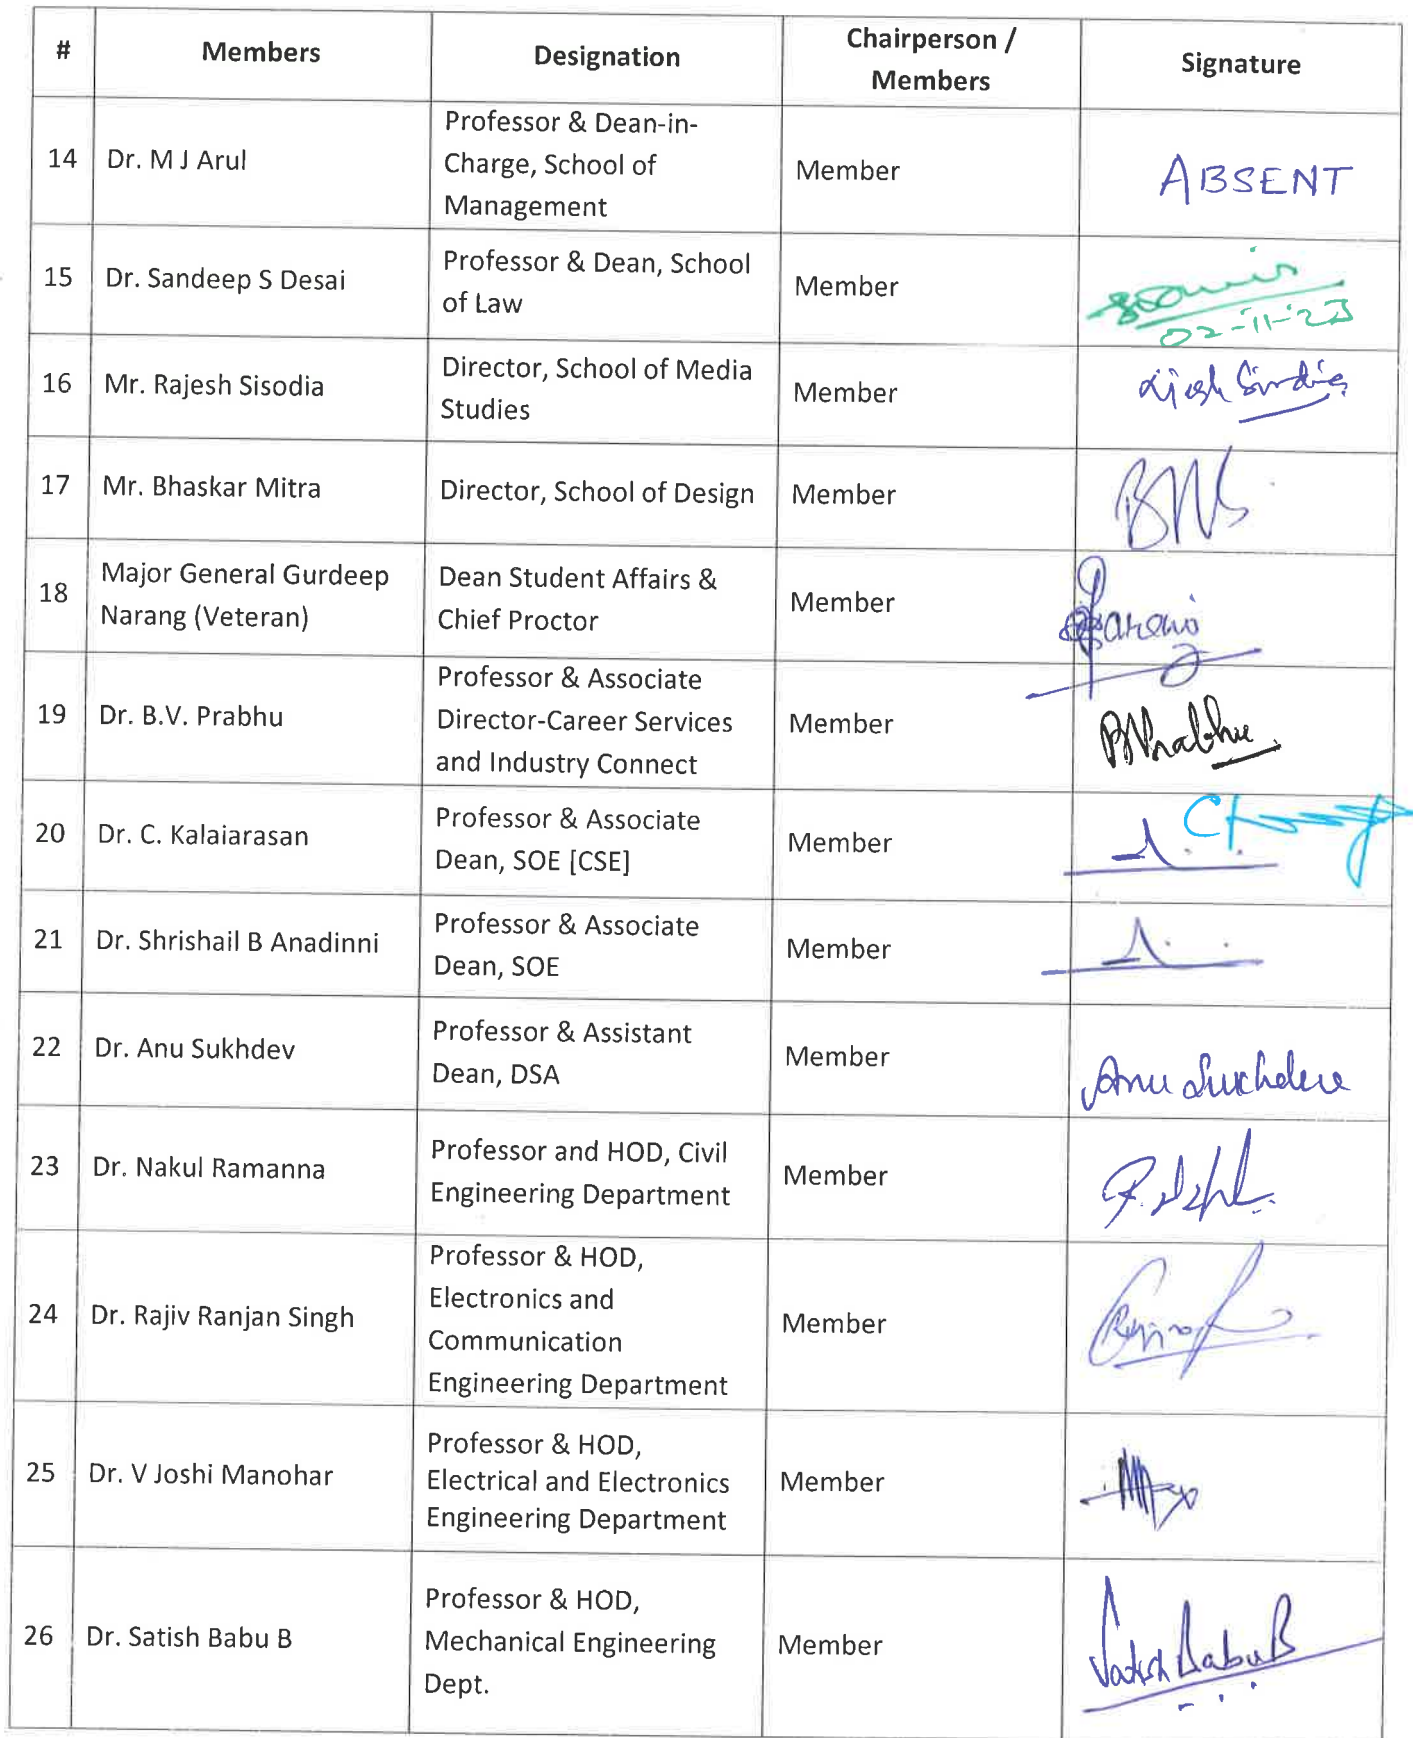 #
Members
Designation
Chairperson /
Members
Signature
14
Dr. M J Arul
Professor & Dean-in-
Charge, School of
Management
Member
ABSENT
15
Dr. Sandeep S Desai
Professor & Dean, School
of Law
Member
02-11-23
16
Mr. Rajesh Sisodia
Director, School of Media
Studies
Member
17
Mr. Bhaskar Mitra
Director, School of Design
Member
18
Major General Gurdeep
Narang (Veteran)
Dean Student Affairs &
Chief Proctor
Member
19
Dr. B.V. Prabhu
Professor & Associate
Director-Career Services
and Industry Connect
Member
BVPrabhu
20
Dr. C. Kalaiarasan
Professor & Associate
Dean, SOE [CSE]
Member
21
Dr. Shrishail B Anadinni
Professor & Associate
Dean, SOE
Member
22
Dr. Anu Sukhdev
Professor & Assistant
Dean, DSA
Member
Anu Sukhdev
23
Dr. Nakul Ramanna
Professor and HOD, Civil
Engineering Department
Member
24
Dr. Rajiv Ranjan Singh
Professor & HOD,
Electronics and
Communication
Engineering Department
Member
25
Dr. V Joshi Manohar
Professor & HOD,
Electrical and Electronics
Engineering Department
Member
26
Dr. Satish Babu B
Professor & HOD,
Mechanical Engineering
Dept.
Member
Satish Babu B